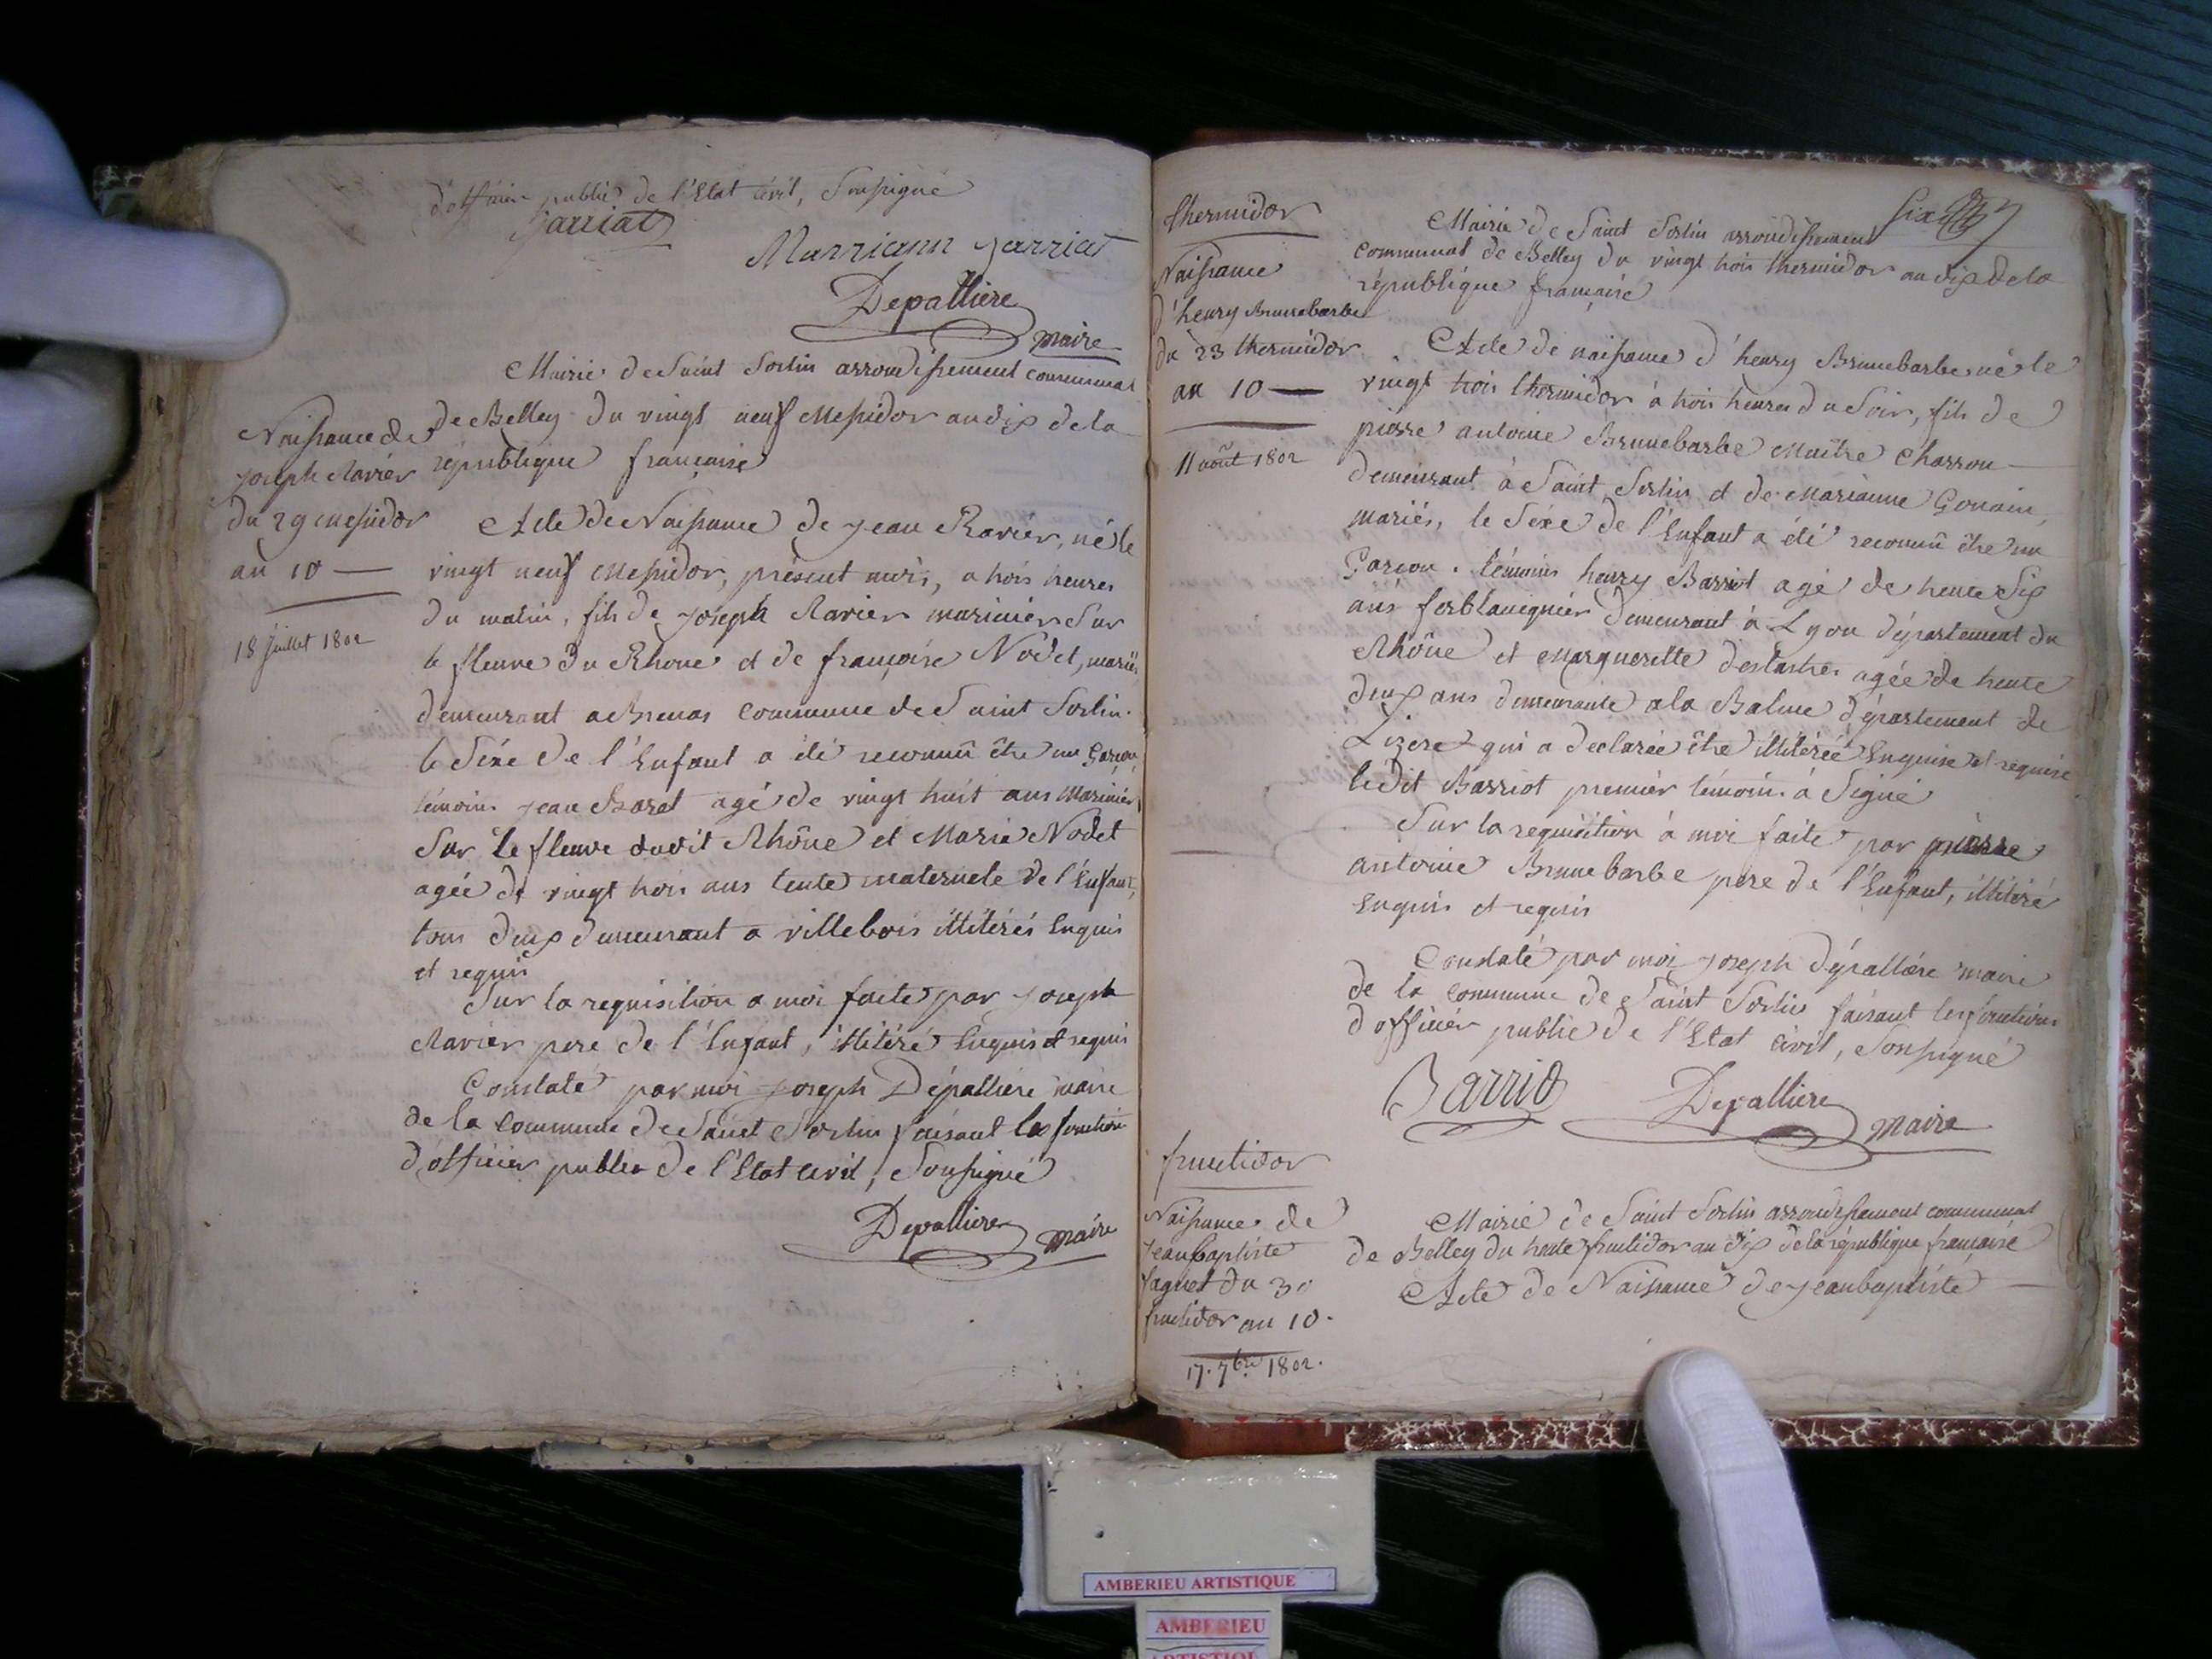 d'officier public de l'Etat civil, Soussigné
Jarriat
Marriann Jarriat
Depalliere
maire
Mairie de Saint Sorlin arrondissement communal
de Belley du vingt neuf Messidor an dix de la
république française
Naissance de
joseph Ravier
du 29 messidor
an 10 —
18 Juillet 1802
Acte de Naissance de jean Ravier, né le
vingt neuf Messidor, présent mois, a trois heures
du matin, fils de joseph Ravier marinier Sur
le fleuve du Rhone et de françoise Nodet, mariés
demeurant a Brenas Commune de Saint Sorlin.
le Séxe de l'Enfant a été reconnû être un Garçon
témoins jean Baret agé de vingt huit ans Marinier
Sur le fleuve dudit Rhône et Marie Nodet
agée de vingt trois ans tente maternele de l'Enfant,
tous deux demeurant a villebois illitérés Enquis
et requis
Sur la requisition a moi faite par joseph
Ravier pere de l'Enfant, illitéré Enquis et requis
Constaté par moi joseph Dépalliere maire
de la Commune de Saint Sorlin faisant les fonction
d'officier public de l'Etat civil, Soussigné
Depalliere maire
thermidor
Naissance
d'henry Brunebarbe
du 23 thermidor
an 10 —
11 août 1802
Six
Mairie de Saint Sorlin arrondissement
communal de Belley du vingt trois thermidor an dix de la
république française
Acte de naissance d'henry Brunebarbe né le
vingt trois thermidor à trois heures du Soir, fils de
pierre antoine Brunebarbe Maitre Charron
demeurant à Saint Sorlin et de Marianne Gonain,
mariés, le Séxe de l'Enfant a été reconnû être un
Garçon. témoins henry Barriot agé de trente Six
ans ferblanquier demeurant à Lyon département du
Rhône et Marguerette agée de trente
deux ans demeurante a la Balme département de
Lizere qui a declarée être illitérée Enquise et requise
ledit Barriot premier témoin à Signé
Sur la requisition à moi faite par pierre
antoine Brunebarbe pere de l'Enfant, illitéré
Enquis et requis
Constaté par moi joseph dépalliere maire
de la Commune de Saint Sorlin faisant les fonctions
d'officier public de l'Etat civil, Soussigné
Barriot Depalliere maire
fructidor
Naissance de
jeanbaptiste
faguet du 30
fructidor an 10.
17. 7bre 1802.
Mairie de Saint Sorlin arrondissement communal
de Belley du trente fructidor an dix de la république française
Acte de Naissance de jeanbaptiste —
AMBERIEU ARTISTIQUE
AMBERIEU
ARTISTIQUE